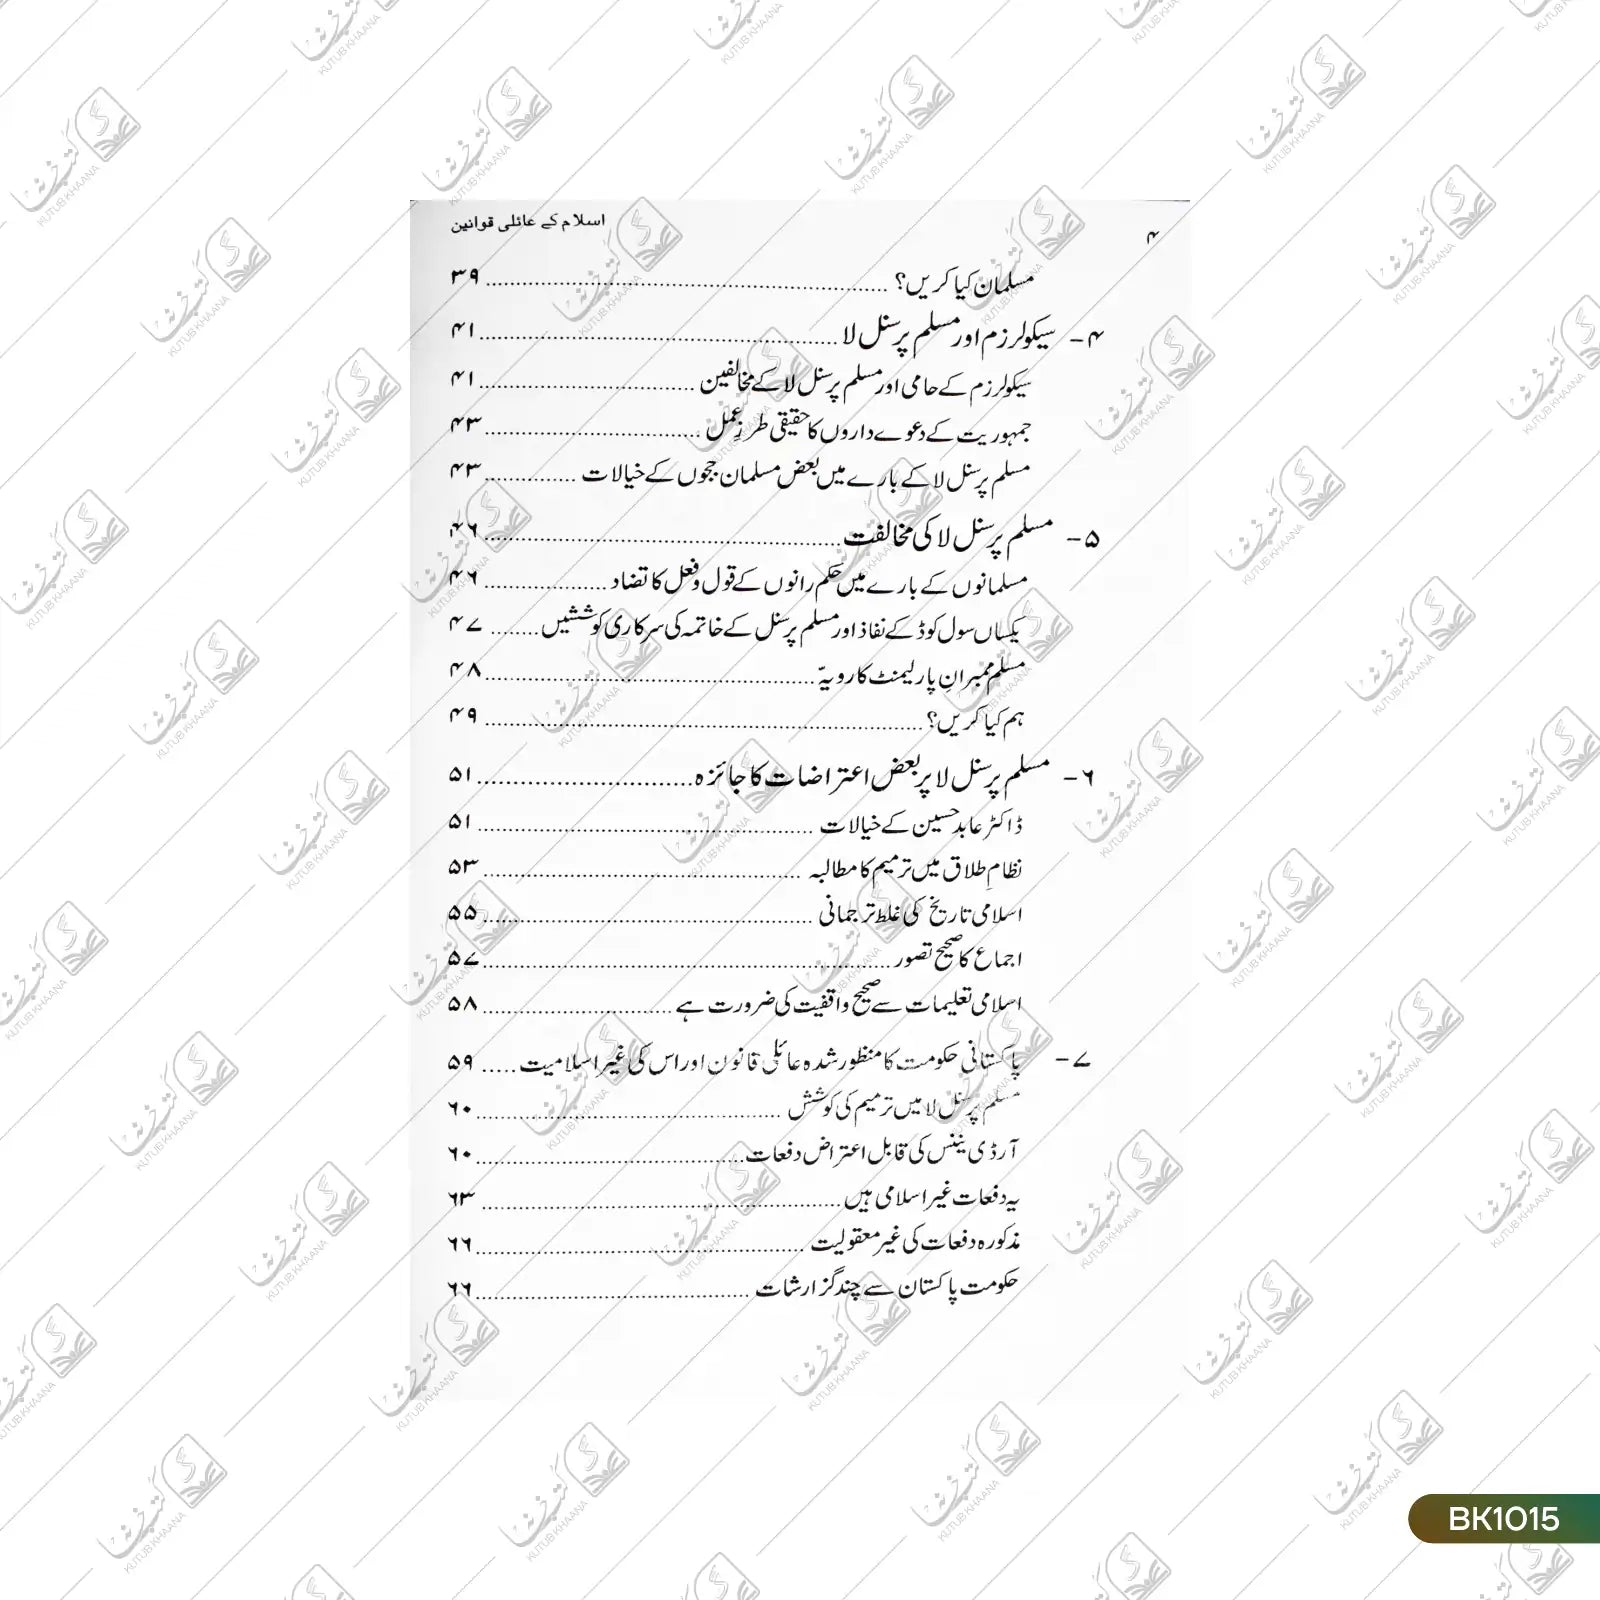 ۴ اسلام کے عائلی قوانین
مسلمان کیا کریں؟ ۳۹
۴- سیکولرزم اور مسلم پرسنل لا ۴۱
سیکولرزم کے حامی اور مسلم پرسنل لا کے مخالفین ۴۱
جمہوریت کے دعوے داروں کا حقیقی طرزِ عمل ۴۳
مسلم پرسنل لا کے بارے میں بعض مسلمان ججوں کے خیالات ۴۳
۵- مسلم پرسنل لا کی مخالفت ۴۶
مسلمانوں کے بارے میں حکم رانوں کے قول و فعل کا تضاد ۴۶
یکساں سول کوڈ کے نفاذ اور مسلم پرسنل کے خاتمہ کی سرکاری کوششیں ۴۷
مسلم ممبرانِ پارلیمنٹ کا رویہّ ۴۸
ہم کیا کریں؟ ۴۹
۶- مسلم پرسنل لا پر بعض اعتراضات کا جائزہ ۵۱
ڈاکٹر عابد حسین کے خیالات ۵۱
نظامِ طلاق میں ترمیم کا مطالبہ ۵۳
اسلامی تاریخ کی غلط ترجمانی ۵۵
اجماع کا صحیح تصور ۵۷
اسلامی تعلیمات سے صحیح واقفیت کی ضرورت ہے ۵۸
۷- پاکستانی حکومت کا منظور شدہ عائلی قانون اور اس کی غیر اسلامیت ۵۹
مسلم پرسنل لا میں ترمیم کی کوشش ۶۰
آرڈی ننس کی قابل اعتراض دفعات ۶۰
یہ دفعات غیر اسلامی ہیں ۶۳
مذکورہ دفعات کی غیر معقولیت ۶۶
حکومت پاکستان سے چند گزارشات ۶۶
BK1015
کتب خانہ
KUTUB KHAANA